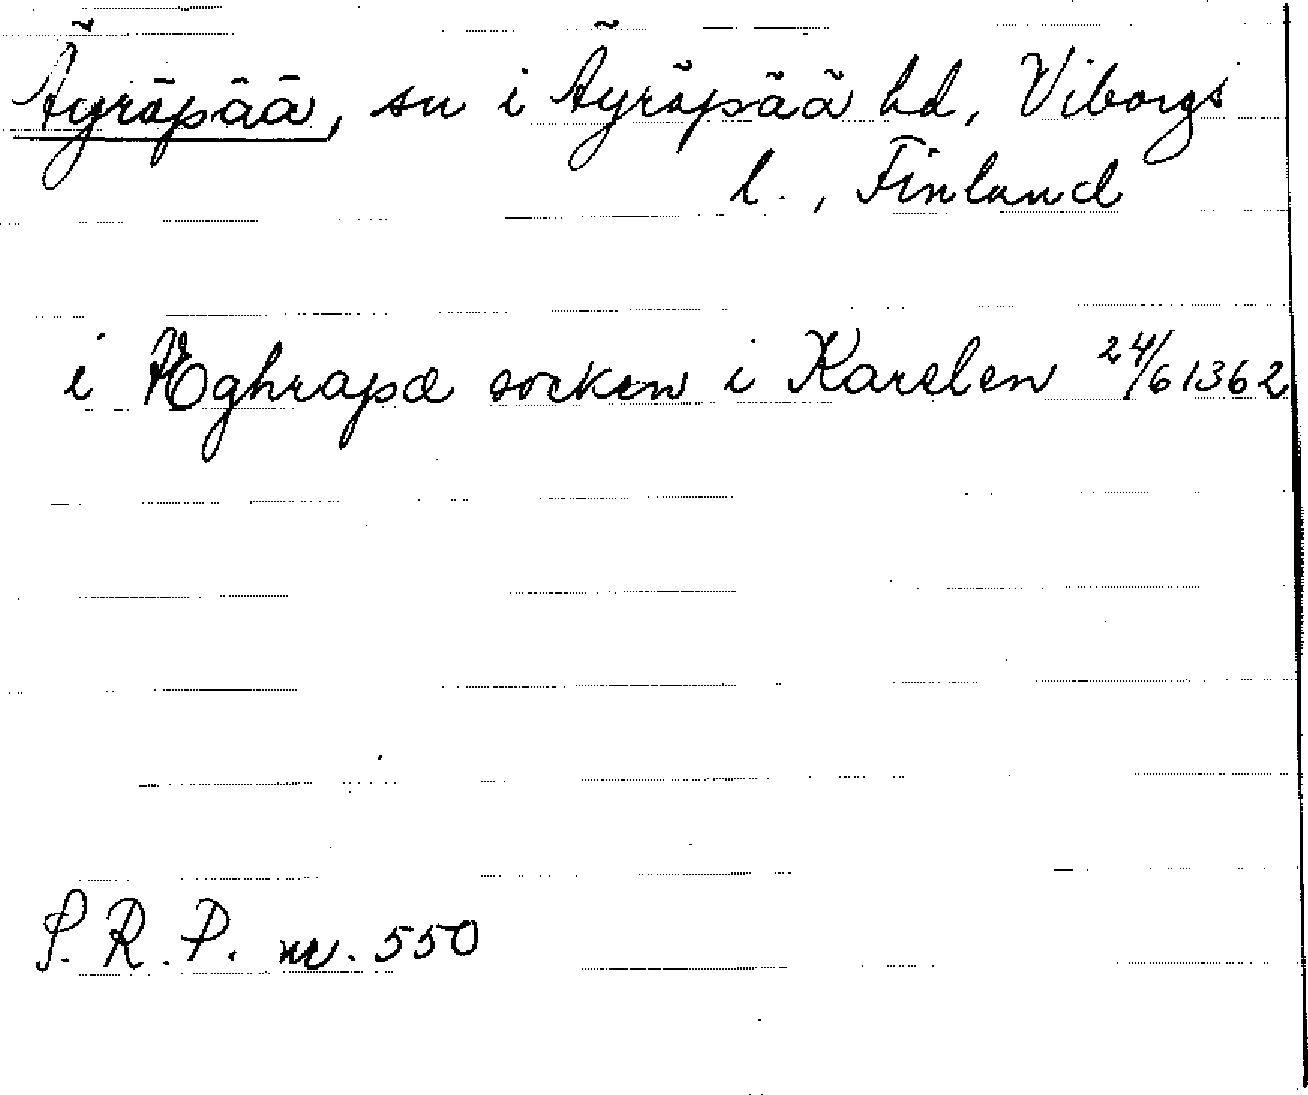 Äyräpää, sn i Äyräpää hd, Viborgs
l., Finland
i Æghrapæ socken i Karelen 24/6 1362
S.R.P. nr. 550